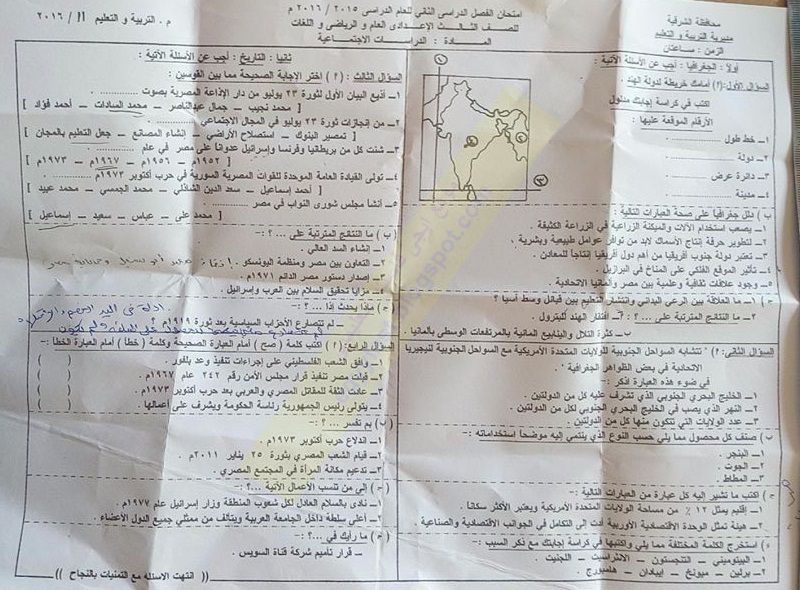 محافظة الشرقية
مديرية التربية و التعليم
الزمن : ساعتان
امتحان الفصل الدراسى الثاني للعام الدراسى ٢٠١٥ / ٢٠١٦ م
للصف الثالث الإعدادى العام و الرياضى و اللغات
المــادة : الدراســات الاجتمـاعية
م . التربية و التعليم ١١ / ٢٠١٦
أولاً : الجغرافيا : أجب عن الأسئلة الآتية :
السؤال الأول:(أ) أمامك خريطة لدولة الهند .
اكتب في كراسة إجابتك مدلول
الأرقام الموقعة عليها :
١ــ خط طول
٢ــ دولة
٣ــ دائرة عرض
٤ــ مدينة
ب) دلل جغرافياً على صحة العبارات التالية :
١ــ يصعب استخدام الآلات والميكنة الزراعية في الزراعة الكثيفة .
٢ــ لتطوير حرفة إنتاج الأسماك لابد من توافر عوامل طبيعية وبشرية .
٣ــ تعتبر دولة جنوب أفريقيا من أهم دول أفريقيا إنتاجاً للمعادن .
٤ــ تأثير الموقع الفلكي على المناخ في البرازيل .
٥ــ وجود علاقات ثقافية وعلمية بين مصر وألمانيا الاتحادية .
ج) ١ــ ما العلاقة بين الرعي البدائي وانتشار التعليم بين قبائل وسط آسيا ؟
٢ــ ما النتائج المترتبة على ....؟ : أــ افتقار الهند للبترول .
ب ــ كثرة التلال والينابيع المائية بالمرتفعات الوسطي بألمانيا .
السؤال الثانى : أ) " تتشابه السواحل الجنوبية للولايات المتحدة الأمريكية مع السواحل الجنوبية لنيجيريا
الاتحادية في بعض الظواهر الجغرافية .
في ضوء هذه العبارة اذكر :
١ــ الخليج البحري الجنوبي الذي تشرف عليه كل من الدولتين .
٢ــ النهر الذي يصب في الخليج البحري الجنوبي لكل من الدولتين .
٣ــ عدد الولايات التي تتكون منها كل من الدولتين .
ب) صنف كل محصول مما يلي حسب النوع الذي ينتمي إليه موضحاً استخداماته :ــ
١ــ البنجر .
٢ــ الجوت .
٣ــ المطاط .
ج) اكتب ما تشير إليه كل عبارة من العبارات التالية :ــ
١ــ إقليم يمثل ١٢ ٪ من مساحة الولايات المتحدة الأمريكية ويعتبر الأكثر سكانا .
٢ــ هيئة تمثل الوحدة الاقتصادية الأوربية أدت إلى التكامل في الجوانب الاقتصادية والصناعية .
د) استخرج الكلمة المختلفة مما يلي واكتبها في كراسة إجابتك مع ذكر السبب :ــ
١ــ البيتوميني ــ التنجستون ــ الانثراسيت ــ اللجنيت .
٢ــ برلين ــ ميونخ ــ إيبادان ــ هامبورج .
ثانيا : التاريخ : أجب عن الأسئلة الآتية :
السؤال الثالث : (أ) اختر الإجابة الصحيحة مما بين القوسين :
١ــ أذيع البيان الأول لثورة ٢٣ يوليو من دار الإذاعة المصرية بصوت
[ محمد نجيب ــ جمال عبدالناصر ــ محمد السادات ــ أحمد فؤاد ]
٢ــ من إنجازات ثورة ٢٣ يوليو في المجال الاجتماعي
[ تمصير البنوك ــ استصلاح الأراضي ــ إنشاء المصانع ــ جعل التعليم بالمجان ]
٣ــ شنت كل من بريطانيا وفرنسا وإسرائيل عدواناً على مصر في عام
[ ١٩٥٢م ــ ١٩٥٦م ــ ١٩٦٧م ــ ١٩٧٣م ]
٤ــ تولى القيادة العامة الموحدة للقوات المصرية السورية في حرب أكتوبر ١٩٧٣م
[ أحمد إسماعيل ــ سعد الدين الشاذلي ــ محمد الجمسي ــ محمد عبيد ]
٥ــ أنشأ مجلس شورى النواب في مصر
[ محمد على ــ عباس ــ سعيد ــ إسماعيل ]
(ب) ما النتائج المترتبة على ....؟ :ــ
١ــ إنشاء السد العالي .
٢ــ التعاون بين مصر ومنظمة اليونسكو .
٣ــ إصدار دستور مصر الدائم ١٩٧١م .
٤ــ مزايا تحقيق السلام بين العرب وإسرائيل .
(ج) ماذا يحدث إذا ...؟ :ــ
ــ لم تتصارع الأحزاب السياسية بعد ثورة ١٩١٩ م ؟
السؤال الرابع: (أ) اكتب كلمة ( صح ) أمام العبارة الصحيحة وكلمة ( خطأ ) أمام العبارة الخطأ :ــ
١ــ وافق الشعب الفلسطيني على إجراءات تنفيذ وعد بلفور . ( )
٢ــ قبلت مصر تنفيذ قرار مجلس الأمن رقم ٢٤٢ عام ١٩٦٧م . ( )
٣ــ عادت الثقة للمقاتل المصري والعربي بعد حرب أكتوبر ١٩٧٣م . ( )
٤ــ يتولى رئيس الجمهورية رئاسة الحكومة ويشرف على أعمالها . ( )
(ب) بم تفسر ...؟ :ــ
١ــ اندلاع حرب أكتوبر ١٩٧٣م .
٢ــ قيام الشعب المصري بثورة ٢٥ يناير ٢٠١١ م .
٣ــ تدعيم مكانة المرأة في المجتمع المصري .
(ج) إلى من تنسب الأعمال الآتية ...؟ :ــ
١ــ نادى بالسلام العادل لكل شعوب المنطقة وزار إسرائيل عام ١٩٧٧م .
٢ــ أعلى سلطة داخل الجامعة العربية ويتألف من ممثلي جميع الدول الأعضاء .
(د) ما رأيك في ...؟ :ــ
ــ قرار تأميم شركة قناة السويس .
(( انتهت الاسئله مع التمنيات بالنجاح ))